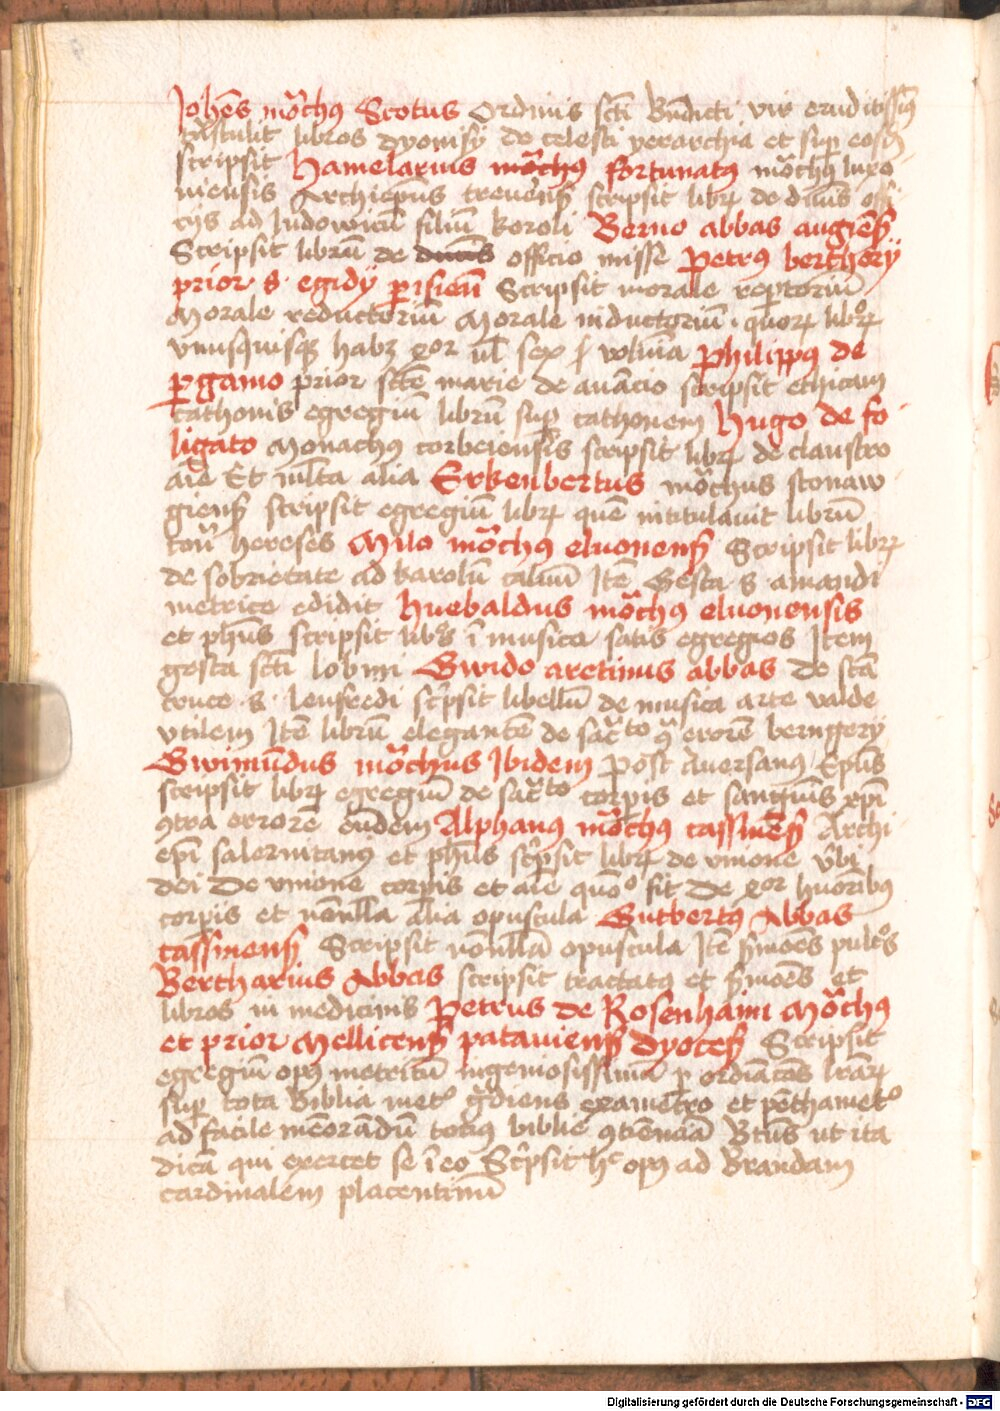 Johēs mōchꝯ Scotus Ordinis scti Bndicti vir eruditissimꝯ
trāstulit libros dyonisy de celesti yerarchia et sup eosdē
scripsit Hamelarius mōchꝯ fortunatꝯ mōchꝯ luxo
uiensis Archiepus treuēns scripsit libꝝ de diuīs offi
cys ad ludowicū filiū karoli Berno abbas augiēs
Scripsit librū de diuīs officio misse Petrꝯ berthory
prior s. egidy pisien̄ Scripsit morale reptoriū
Morale reductoriū Morale inductoriū quoꝝ libroꝝ
vnusquisqꝫ habꝫ xor ul sex volūīa Philippꝯ de
pgamo prior scte marie de auācio scripsit ethicam
cathonis egregiū librū sup cathonem Hugo de fo
ligato Monachꝯ corbeiensis scripsit libꝝ de claustro
aīe Et mlta alia Erkenbertus mōchus sconaw
giens scripsit egregiū libꝝ quē intitulauit librū
cont hereses Milo mōchꝯ eluonens Scripsit libꝝ
de sobrietate ad karolū caluū Itē Gesta s. amandi
metrice edidit Huebaldus mōchꝯ eluonensis
et phūs scripsit libros ī musica satis egregios Item
gesta scti lobini Gwido aretinus abbas de scā
cruce s. leufredi scpsit libellū de musica arte valde
vtilem Itē librū elegantē de sacto ꝯ erorē berngery
Gwimūdus mōchus Ibidem Post Auersanꝯ Epus
scripsit libꝝ egregiū de sacto corpis et sanguīs xpi
ꝯtra errorē eūdem Alphanꝯ mōchꝯ cassinēs Archi
epi salernitanꝯ et phūs scpsit libꝝ de vnione vbi
dei De vnione corpis et aīe quō fit De xor huorībꝯ
corpis et nōnlla alia opuscula Gutbertꝯ Abbas
cassinens Scripsit nōnlla opuscula Itē smōēs pulcros
Bertharius Abbas scripsit tractatꝯ et smōēs et
libros in medicinis Petrus de Rosenhaim Mōchꝯ
et prior Mellicens pataviens dyoces Scripsit
egregiū opꝯ metricū ingeniosissimū p ordinacōes lraꝝ
sup tota Biblia met gdiens exametro et pēthamet
ad facile mēorandū totiꝯ biblie ꝯtinēciā Btūs ut ita
dicā qui exercet se ī eo Scpsit hc opꝯ ad Brandam
cardinalem placentinū
Digitalisierung gefördert durch die Deutsche Forschungsgemeinschaft - DFG